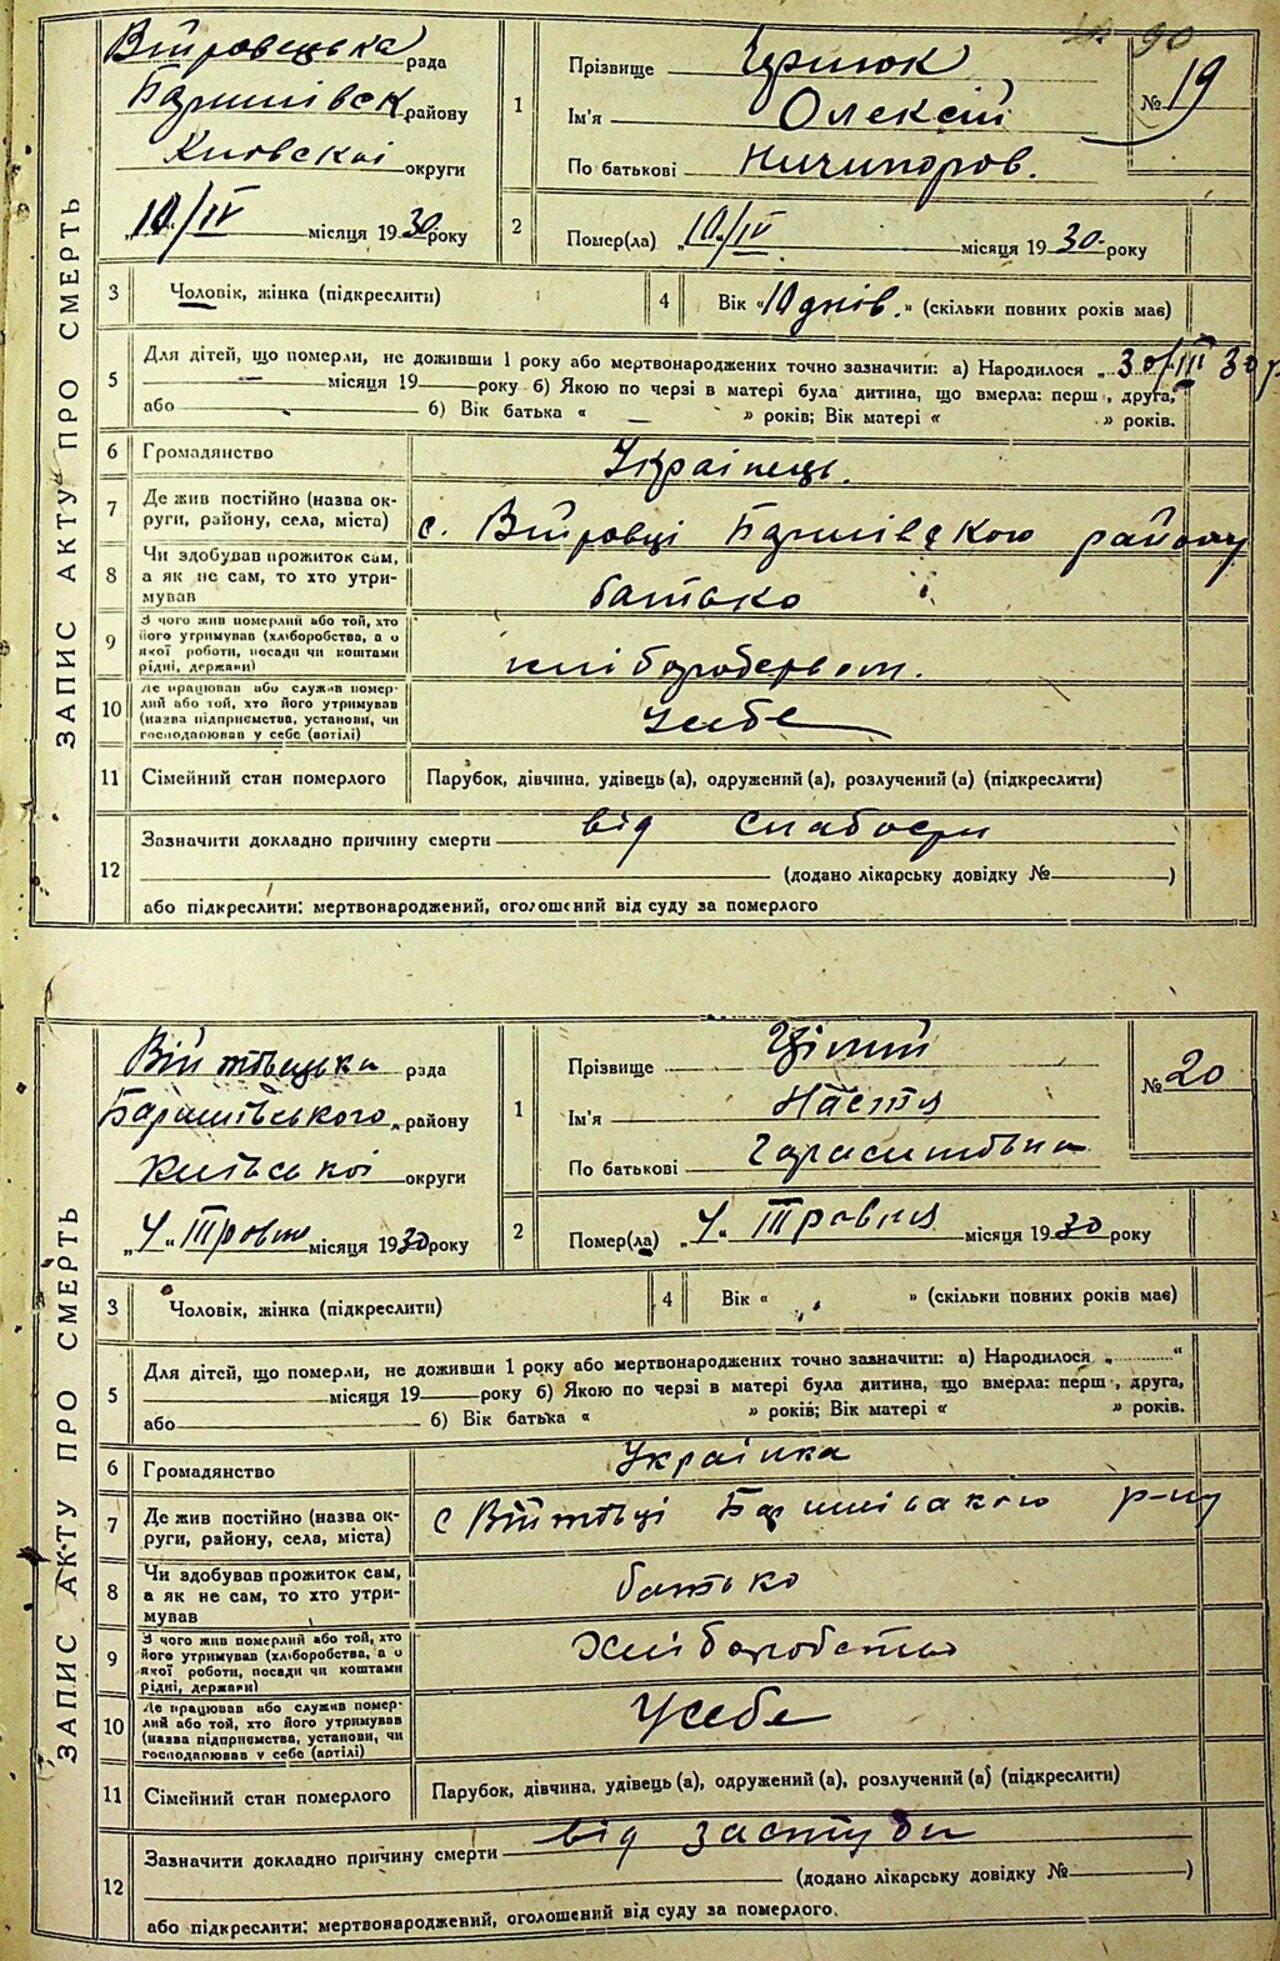 90
ЗАПИС АКТУ ПРО СМЕРТЬ
рада
району
округи
„10“/IV місяця 1930 року
1 Прізвище
Ім'я Олексій
По батькові Ничипоров.
№ 19
2 Помер(ла) „10“/IV місяця 1930 року
3 Чоловік, жінка (підкреслити)
4 Вік «10 днів.» (скільки повних років має)
5 Для дітей, що померли, не доживши 1 року або мертвонароджених точно зазначити: а) Народилося „30/III 30 р
місяця 19 року б) Якою по черзі в матері була дитина, що вмерла: перш , друга,
або б) Вік батька « — » років; Вік матері « » років.
6 Громадянство Українець.
7 Де жив постійно (назва округи, району, села, міста) с. району
8 Чи здобував прожиток сам, а як не сам, то хто утримував батько
9 З чого жив померлий або той, хто його утримував (хліборобства, а о якої роботи, посади чи коштами рідні, держави)
10 Де працював або служив померлий або той, хто його утримував (назва підприємства, установи, чи господарював у себе (артілі) Усебе
11 Сімейний стан померлого Парубок, дівчина, удівець (а), одружений (а), розлучений (а) (підкреслити)
12 Зазначити докладно причину смерти від слабости
(додано лікарську довідку № )
або підкреслити: мертвонароджений, оголошений від суду за померлого
ЗАПИС АКТУ ПРО СМЕРТЬ
Війтовецька рада
Баришівського району
Київської округи
„4“ Травня місяця 1930 року
1 Прізвище Цілий
Ім'я Настя
По батькові Гарасимовна
№ 20
2 Помер(ла) „4“ Травня місяця 1930 року
3 Чоловік, жінка (підкреслити)
4 Вік « » (скільки повних років має)
5 Для дітей, що померли, не доживши 1 року або мертвонароджених точно зазначити: а) Народилося „ “
місяця 19 року б) Якою по черзі в матері була дитина, що вмерла: перш , друга,
або б) Вік батька « » років; Вік матері « » років.
6 Громадянство Українка
7 Де жив постійно (назва округи, району, села, міста) с Війтовці Баришівського р-ну
8 Чи здобував прожиток сам, а як не сам, то хто утримував батько
9 З чого жив померлий або той, хто його утримував (хліборобства, а о якої роботи, посади чи коштами рідні, держави) Хліборобство
10 Де працював або служив померлий або той, хто його утримував (назва підприємства, установи, чи господарював у себе (артілі) Усебе
11 Сімейний стан померлого Парубок, дівчина, удівець (а), одружений (а), розлучений (а) (підкреслити)
12 Зазначити докладно причину смерти від застуди
(додано лікарську довідку № )
або підкреслити: мертвонароджений, оголошений від суду за померлого.